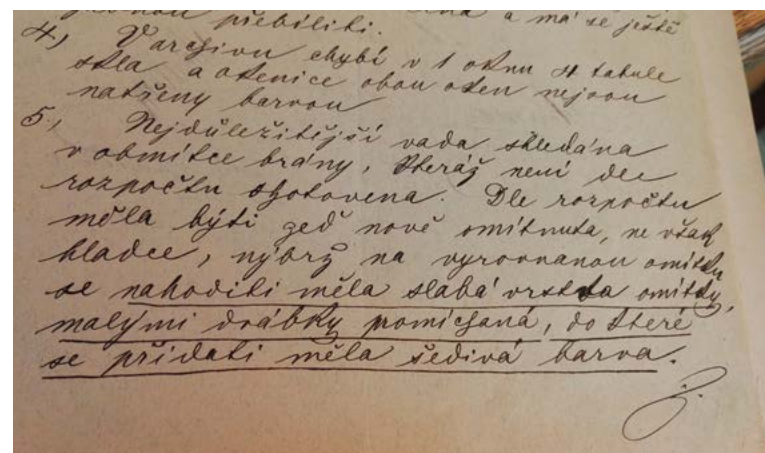 přebíliti. a má se ještě
4.) V archivu chybí v 1 oknu 4 tabule
skla a okenice obou oken nejsou
natřeny barvou
5.) Nejdůležitější vada shledána
v obmítce brány, kteráž není dle
rozpočtu zhotovena. Dle rozpočtu
měla býti zeď nově omítnuta, ne však
hladce, nýbrž na vyrovnanou omítku
se nahoditi měla slabá vrstva omítky,
malými drábky pomíchaná, do které
se přidati měla šedivá barva.